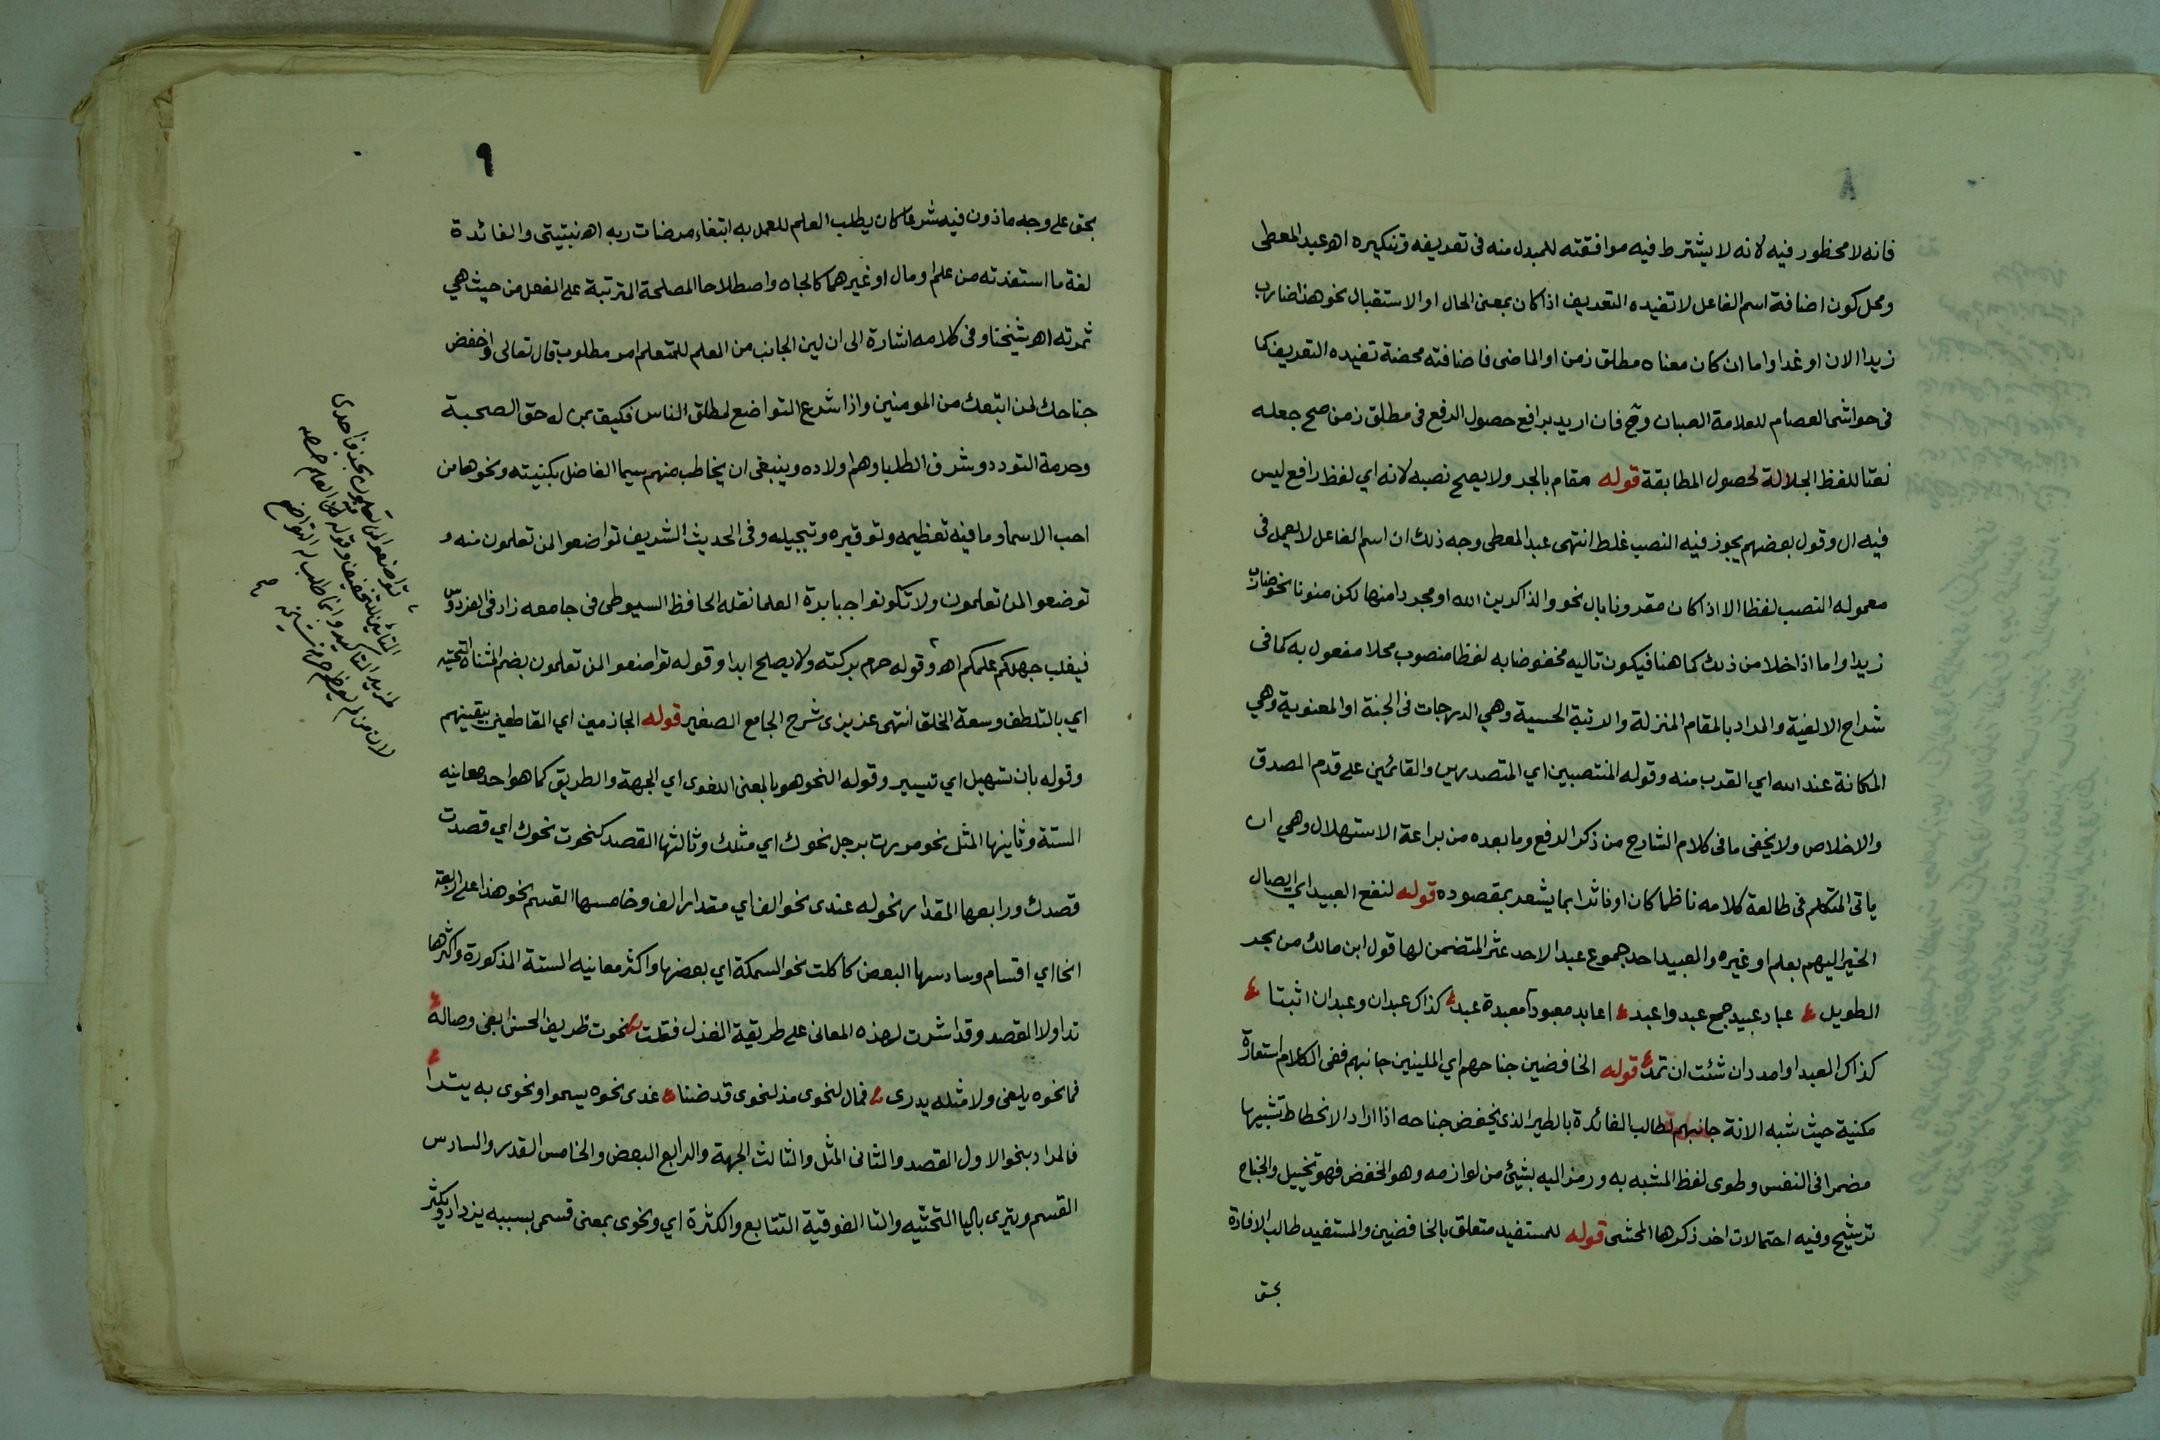 ٨
فانه لا محظور فيه لانه لا يشترط فيه موافقته للمبدل منه فى تعريفه وتنكيره اهـ عبد المعطى
ومحل كون اضافة اسم الفاعل لا تفيده التعريف اذا كان بمعنى الحال او الاستقبال نحو هذا ضارب
زيدا الان او غدا واما ان كان معناه مطلق زمن او الماضى فاضافته محضة تفيده التعريف كما
فى حواشى العصام للعلامة الصبان وح فان اريد برافع حصول الرفع فى مطلق زمن صح جعله
نعتا للفظ الجلالة لحصول المطابقة قوله مقام بالجر ولا يصح نصبه لانه اي لفظ رافع ليس
فيه ال وقول بعضهم يجوز فيه النصب غلط انتهى عبد المعطى وجه ذلك ان اسم الفاعل لا يعمل فى
معموله النصب لفظا الا اذا كان مقرونا بال نحو والذاكرين الله او مجردا منها لكن منونا نحو ضارب
زيدا واما اذا خلا من ذلك كما هنا فيكون تاليه مخفوضا به لفظا منصوب محلا مفعول به كما فى
شراح الالفية والمراد بالمقام المنزلة والرتبة الحسية وهي الدرجات فى الجنة او المعنوية وهي
المكانة عند الله اي القرب منه وقوله المنتصبين اي المتصدرين والقائمين على قدم الصدق
والاخلاص ولا يخفى ما فى كلام الشارح من ذكر الرفع وما بعده من براعة الاستهلال وهي ان
ياتى المتكلم فى طالعة كلامه ناظما كان او ناثرا بما يشعر بمقصوده قوله لنفع العبيد اي ايصال
الخير اليهم بعلم او غيره والعبيد احد جموع عبد الاحد عشر المتضمن لها قول ابن مالك من بحر
الطويل ع عباد عبيد جمع عبد واعبد ع اعابد معبودا معبدة عبد ع كذاك عبدان وعبدان اثبتا ع
كذاك العبدا وامدد ان شئت ان تمد ع قوله الخافضين جناحهم اي الملينين جانبهم ففى الكلام استعارة
مكنية حيث شبه الانة جانبهم لطالب الفائدة بالطير الذى يخفض جناحه اذا اراد الانحطاط تشبيها
مضمرا فى النفس وطوى لفظ المشبه به ورمز اليه بشيئ من لوازمه وهو الخفض فهو تخييل والجناح
ترشيح وفيه احتمالات اخر ذكرها المحشى قوله للمستفيد متعلق بالخافضين والمستفيد طالب الافادة
بحق
٩
بحق على وجه ماذون فيه شرعا كان يطلب العلم للعمل به ابتغاء مرضات ربه اهـ نبتيتى والفائدة
لغة ما استفدته من علم او مال او غيرهما كالجاه واصطلاحا المصلحة المترتبة على الفعل من حيث هي
ثمرته اهـ شيخنا وفى كلامه اشارة الى ان لين الجانب من العلم للمتعلم امر مطلوب قال تعالى واخفض
جناحك لمن اتبعك من المومنين واذا شرع التواضع لمطلق الناس فكيف بمن له حق الصحبة
وحرمة التودد وشرف الطلب وهم اولاده وينبغى ان يخاطب منهم سيما الفاضل بكنيته ونحوها من
احب الاسما وما فيه تعظيمه وتوقيره وتبجيله وفى الحديث الشريف تواضعوا لمن تعلمون منه و
توضعوا لمن تعلمون ولا تكونوا جبابرة العلما نقله الحافظ السيوطى فى جامعه زاد فى الفردوس
فيغلب جهلكم علمكم اهـ وقوله حرم بركته ولا يصلح ابدا وقوله تواضعوا لمن تعلمون بضم المثناة التحتية
اي بالتلطف وسعة الخلق انتهى عزيزى شرح الجامع الصغير قوله الجازمين اي القاطعين بيقينهم
وقوله بان تسهيل اي تيسير وقوله النحو هو بالمعنى اللغوى اي الجهة والطريق كما هو احد معانيه
الستة وثانيها المثل نحو مررت برجل نحوك اي مثلك وثالثها القصد كنحوت نحوك اي قصدت
قصدك ورابعها المقدار نحو له عندى نحو الف اي مقدار الف وخامسها القسم نحو هذا على اربعة
انحا اي اقسام وسادسها البعض كاكلت نحو السمكة اي بعضها واكثر معانيه الستة المذكورة واكثرها
تداولا القصد وقد اشرت لهذه المعانى على طريقة الغزل فقلت نحوت ظريف الحسن ابغى وصاله ع
فما نحوه يلغى ولا مثله يدرى ع فمال لنحوى مذ لنحوى قد ضنا ع غدى نحوه يسموا ونحوى به يترا ع
فالمراد بنحو الاول القصد والثانى المثل والثالث الجهة والرابع البعض والخامس القدر والسادس
القسم ويترى باليا التحتيه والتا الفوقية التتابع والكثرة اي ونحوى بمعنى قسمى بسببه يزداد ويكثر
تواضعوا لمن تعلمون بحذف احدى
التائين للتخفيف وقوله من العلم خصه
لمزيد التاكيد وانما طلب له التواضع